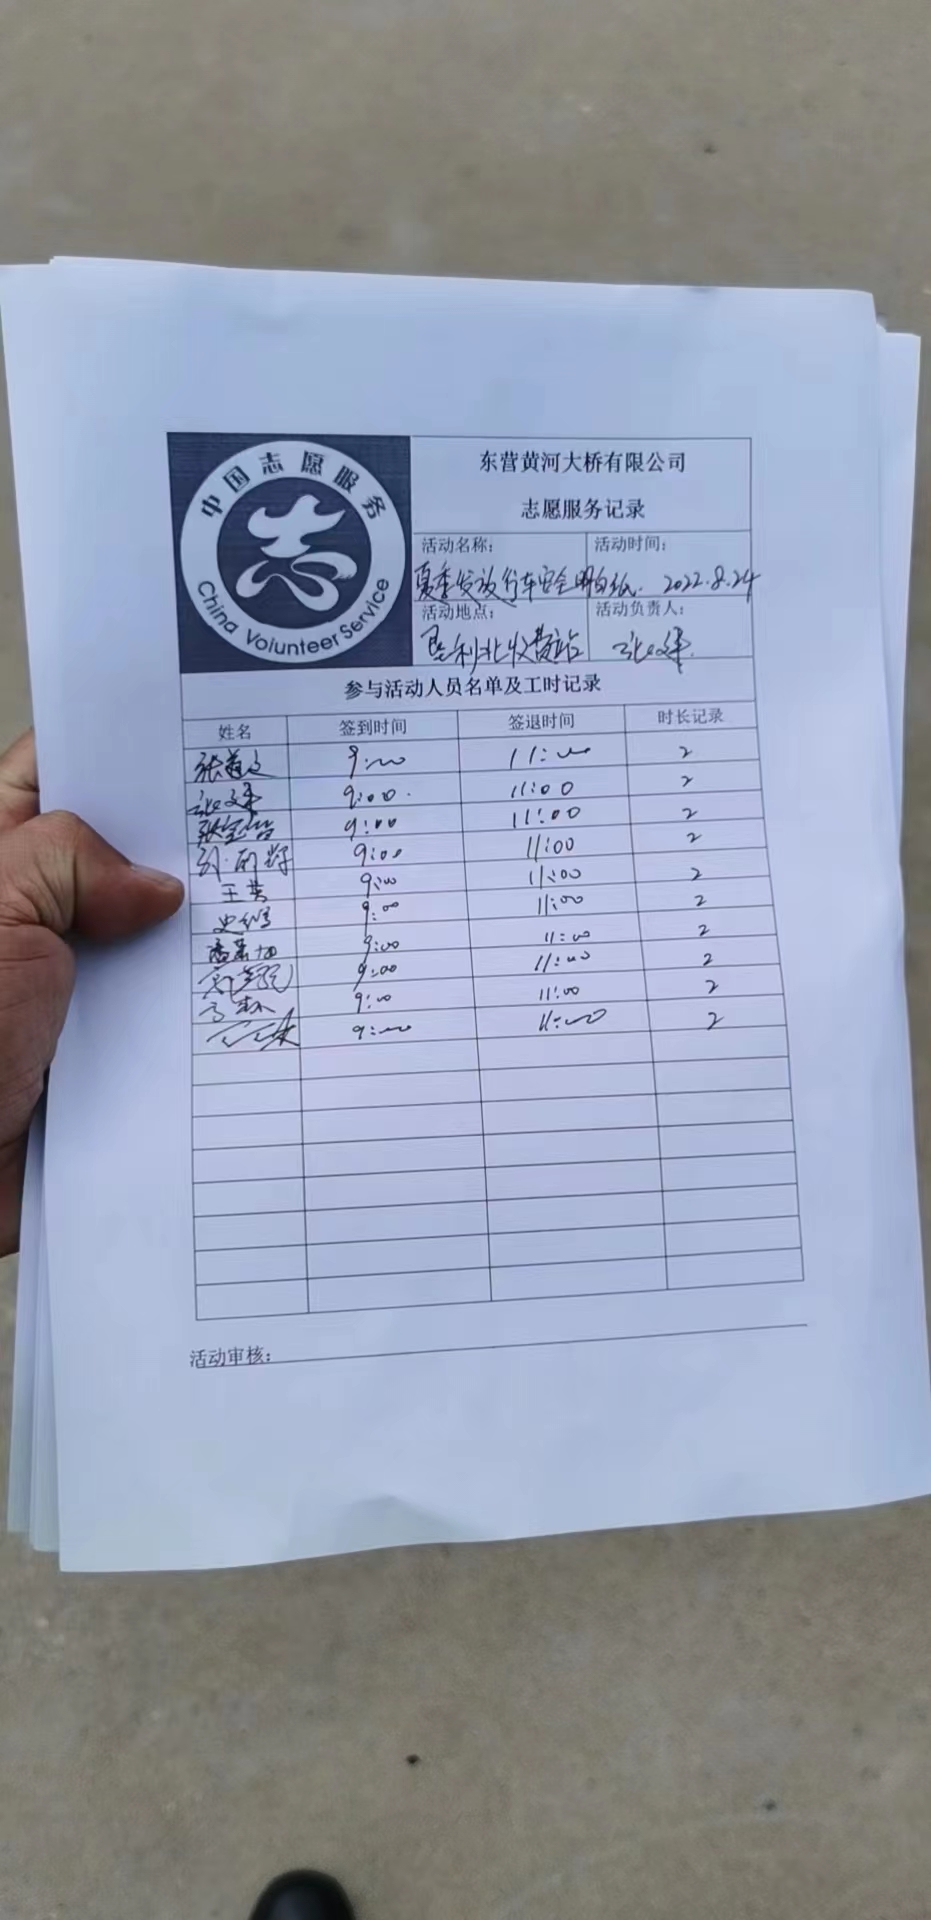 中国志愿服务
志
China Volunteer Service
东营黄河大桥有限公司
志愿服务记录
活动名称： 活动时间：
夏季发放行车安全明白纸. 2022.8.24
活动地点： 活动负责人：
垦利北收费站
参与活动人员名单及工时记录
姓名 签到时间 签退时间 时长记录
9:00 11:00 2
9:00. 11:00 2
9:00 11:00 2
9:00 11:00 2
王芳 9:00 11:00 2
9:00 11:00 2
9:00 11:00 2
9:00 11:00 2
9:00 11:00 2
9:00 11:00 2
活动审核：